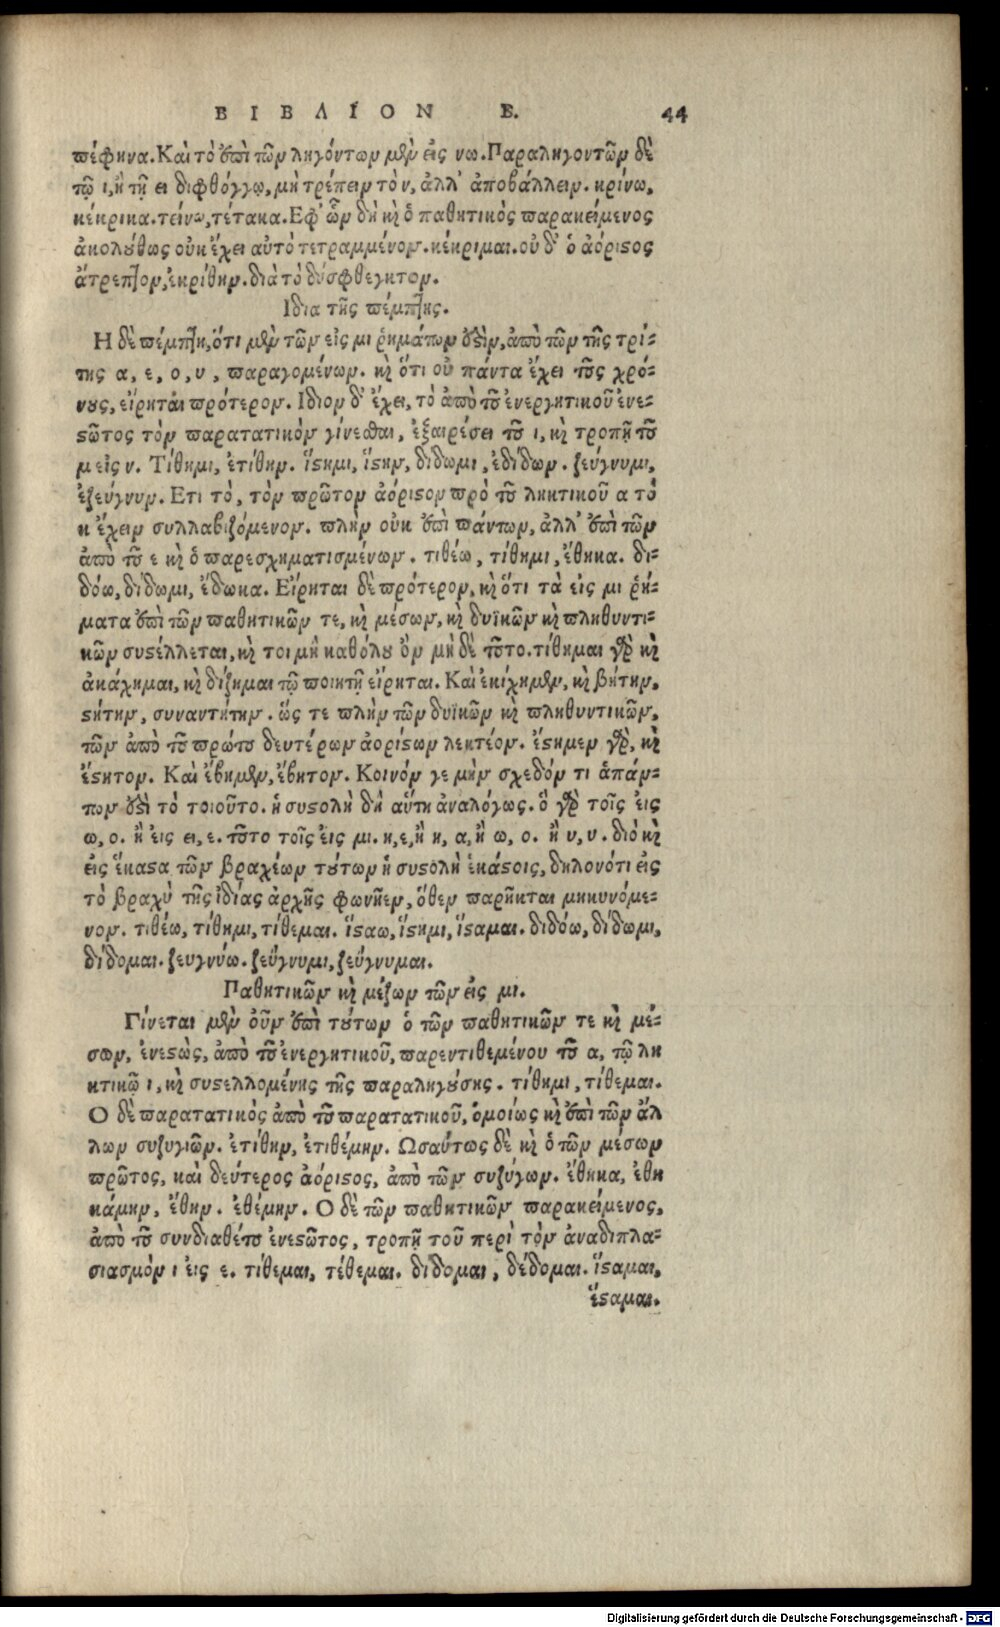 ΒΙΒΛΙΟΝ Β. 44
πέφηνα. Καὶ τὸ ἐπὶ τῶν ληγόντων μὲν εἰς νω. Παραληγοντῶν δὲ
τῷ ι, ἢ τῇ ει διφθόγγῳ, μὴ τρέπειν τὸ ν, ἀλλ' ἀποβάλλειν. κρίνω,
κέκρικα. τείνω, τέτακα. Εφ' ὧν δὴ κὶ ὁ παθητικὸς παρακείμενος
ἀκολούθως οὐκ ἔχει αὐτὸ τετραμμένον. κέκριμαι. οὐ δ' ὁ ἀόριστος
ἄτρεπτον, ἐκρίθην. διὰ τὸ δύσφθεγκτον.
Ιδια τῆς πέμπτης.
Η δὲ πέμπτη, ὅτι μὲν τῶν εἰς μι ῥημάτων ἐστὶν, ἀπὸ τῶν τῆς τρί-
της α, ε, ο, υ, παραγομένων. κὶ ὅτι οὐ πάντα ἔχει τοὺς χρό-
νους, εἴρηται πρότερον. Ιδιον δ' ἔχει, τὸ ἀπὸ τοῦ ἐνεργητικοῦ ἐνε-
στῶτος τὸν παρατατικὸν γίνεσθαι, ἐξαιρέσει τοῦ ι, κὶ τροπῇ τοῦ
μ εἰς ν. Τίθημι, ἐτίθην. ἵστημι, ἵστην, δίδωμι, ἐδίδων. ζεύγνυμι,
ἐζεύγνυν. Ετι τὸ, τὸν πρῶτον ἀόριστον πρὸ τοῦ ληκτικοῦ α τὸ
κ ἔχειν συλλαβιζόμενον. πλὴν οὐκ ἐπὶ πάντων, ἀλλ' ἐπὶ τῶν
ἀπὸ τοῦ ε κὶ ο παρεσχηματισμένων. τιθέω, τίθημι, ἔθηκα. δι-
δόω, δίδωμι, ἔδωκα. Εἴρηται δὲ πρότερον, κὶ ὅτι τὰ εἰς μι ῥή-
ματα ἐπὶ τῶν παθητικῶν τε, κὶ μέσων, κὶ δυϊκῶν κὶ πληθυντι-
κῶν συστέλλεται, κὶ τοι μὴ καθόλου ὂν μὴ δὲ τοῦτο. τίθημαι γὰρ κὶ
ἀκάχημαι, κὶ δίζημαι τῷ ποιητῇ εἴρηται. Καὶ ἐκίχημεν, κὶ βήτην,
στήτην, συναντήτην. ὥς τε πλὴν τῶν δυϊκῶν κὶ πληθυντικῶν,
τῶν ἀπὸ τοῦ πρώτου δευτέρων ἀορίστων λεκτέον. ἔστημεν γὰρ, κὶ
ἔστητον. Καὶ ἔβημεν, ἔβητον. Κοινόν γε μὴν σχεδόν τι ἁπάν-
των ἐστὶ τὸ τοιοῦτο. ἡ συστολὴ δὴ αὕτη ἀναλόγως. ὃ γὰρ τοῖς εἰς
ω, ο. ἢ εἰς ει, ε. τοῦτο τοῖς εἰς μι. η, ε, ἢ η, α, ἢ ω, ο. ἢ υ, υ. διὸ κὶ
εἰς ἕκαστα τῶν βραχέων τούτων ἡ συστολὴ ἑκάστοις, δηλονότι εἰς
τὸ βραχὺ τῆς ἰδίας ἀρχῆς φωνῆεν, ὅθεν παρῆκται μηκυνόμε-
νον. τιθέω, τίθημι, τίθεμαι. ἵσταω, ἵστημι, ἵσταμαι. διδόω, δίδωμι,
δίδομαι. ζευγνύω. ζεύγνυμι, ζεύγνυμαι.
Παθητικῶν κὶ μέσων τῶν εἰς μι.
Γίνεται μὲν οὖν ἐπὶ τούτων ὁ τῶν παθητικῶν τε κὶ μέ-
σων, ἐνεστὼς, ἀπὸ τοῦ ἐνεργητικοῦ, παρεντιθεμένου τοῦ α, τῷ λη
κτικῷ ι, κὶ συστελλομένης τῆς παραληγούσης. τίθημι, τίθεμαι.
Ο δὲ παρατατικὸς ἀπὸ τοῦ παρατατικοῦ, ὁμοίως κὶ ἐπὶ τῶν ἄλ
λων συζυγιῶν. ἐτίθην, ἐτιθέμην. Ωσαύτως δὲ κὶ ὁ τῶν μέσων
πρῶτος, καὶ δεύτερος ἀόριστος, ἀπὸ τῶν συζύγων. ἔθηκα, ἐθη
κάμην, ἔθην. ἐθέμην. Ο δὲ τῶν παθητικῶν παρακείμενος,
ἀπὸ τοῦ συνδιαθέτου ἐνεστῶτος, τροπῇ τοῦ περὶ τὸν ἀναδιπλα-
σιασμὸν ι εἰς ε. τίθεμαι, τέθεμαι. δίδομαι, δέδομαι. ἵσταμαι,
ἕσταμαι.
Digitalisierung gefördert durch die Deutsche Forschungsgemeinschaft - DFG